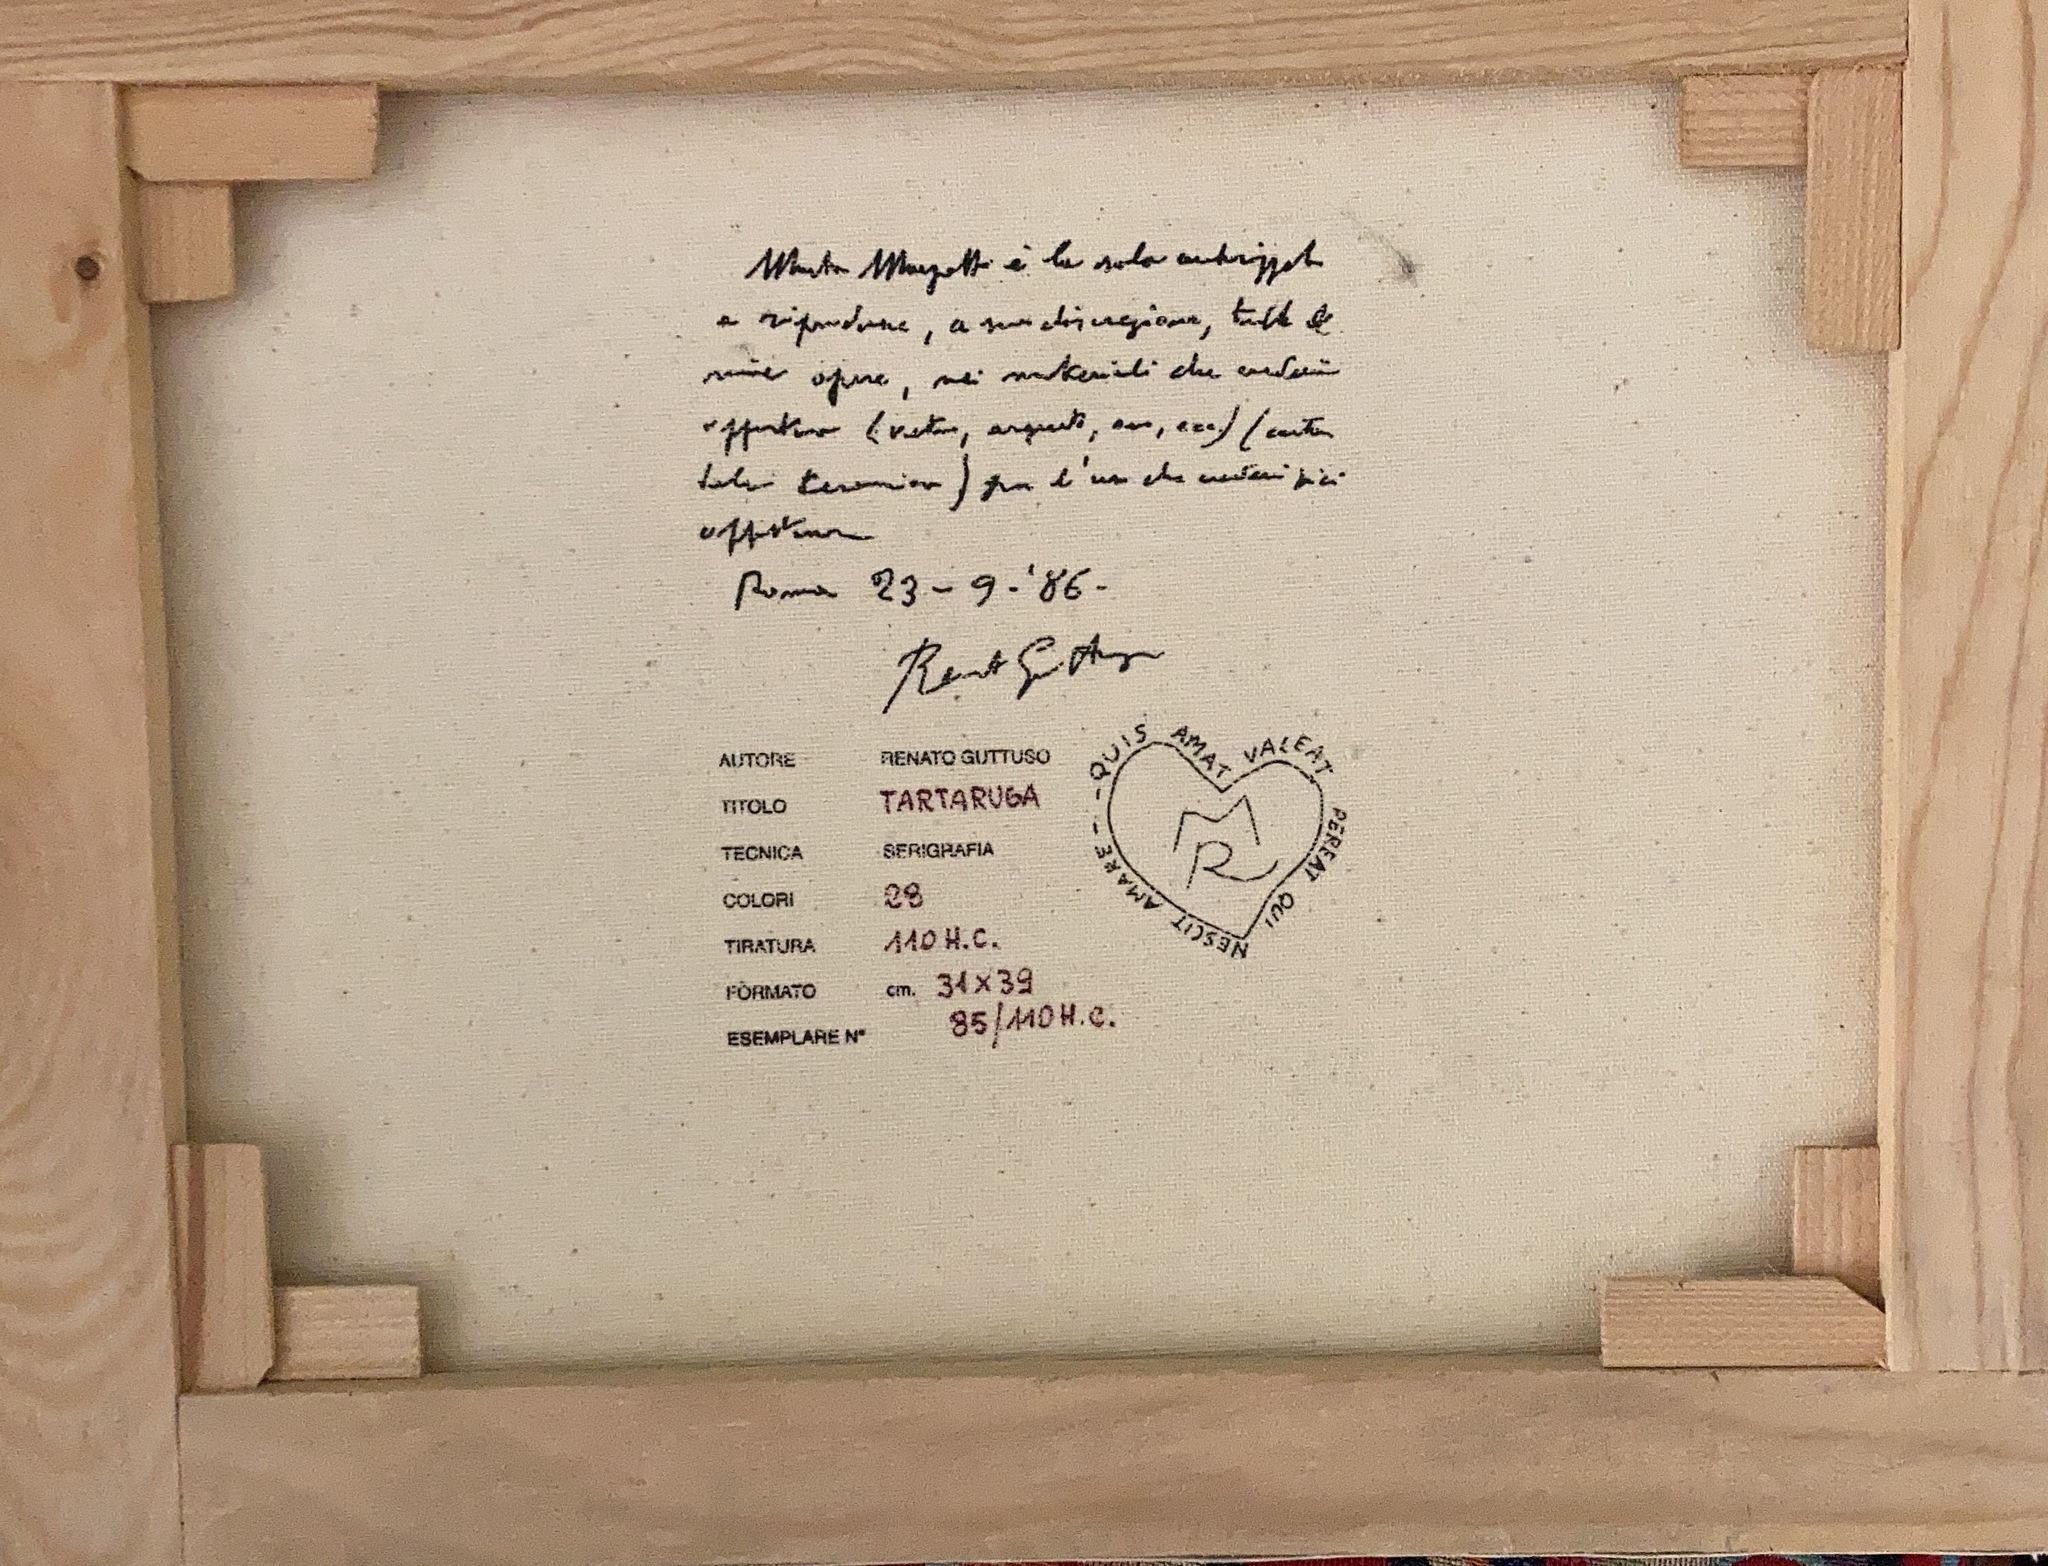 Marta Marzotto è la sola autorizzata
a riprodurre, a sua discrezione, tutte le
mie opere, nei materiali che crederà
opportuno (vetro, argento, oro, ecc) (carta
tela ceramica) per l'uso che crederà più
opportuno
Roma 23-9-'86-
Renato Guttuso
AUTORE RENATO GUTTUSO
TITOLO TARTARUGA
TECNICA SERIGRAFIA
COLORI 28
TIRATURA 110 H.C.
FORMATO cm. 31x39
ESEMPLARE N° 85/110 H.C.
-QUIS AMAT VALEAT PEREAT QUI NESCIT AMARE-
MR